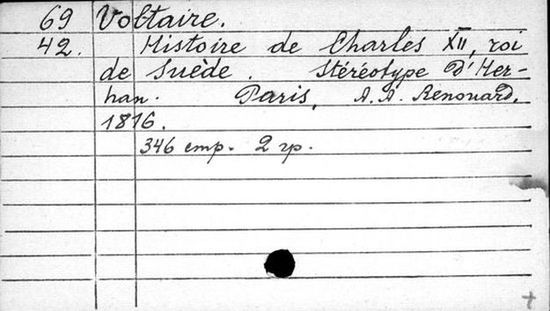 69 Voltaire.
42. Histoire de Charles XII, roi
de Suède. Stéréotype d'Her-
han. Paris, A. A. Renouard,
1816.
346 стр. 2 гр.